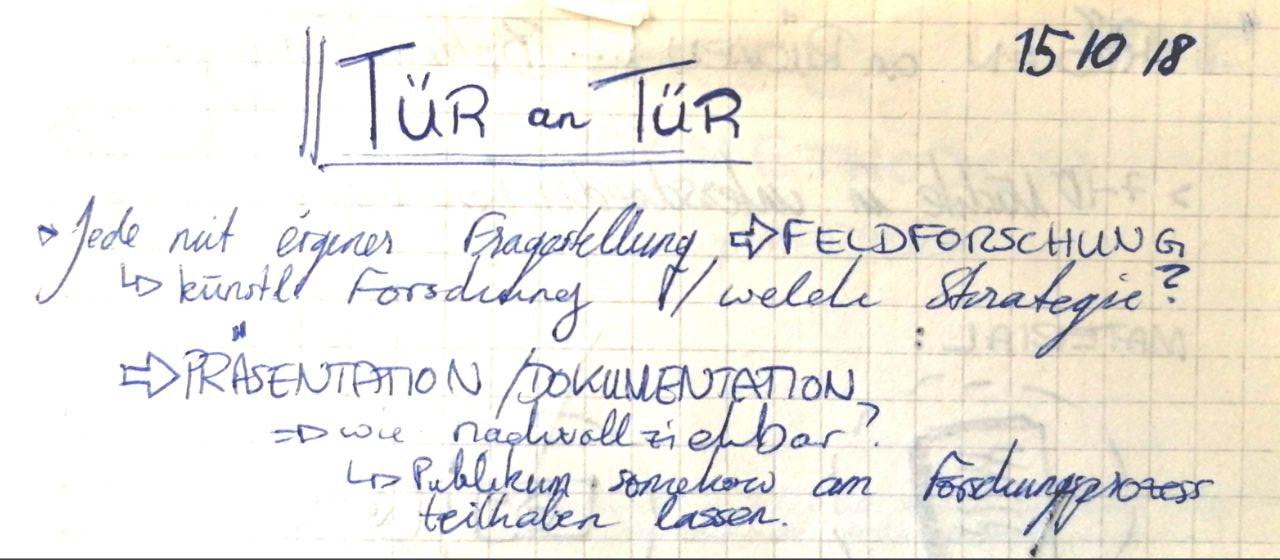 15 10 18
TÜR an TÜR
Jede mit eigener Fragestellung ⇨ FELDFORSCHUNG
↳ künstl. Forschung / welche Strategie?
⇨ PRÄSENTATION / DOKUMENTATION
⇒ wie nachvollziehbar?
↳ Publikum somehow am Forschungsprozess
teilhaben lassen.